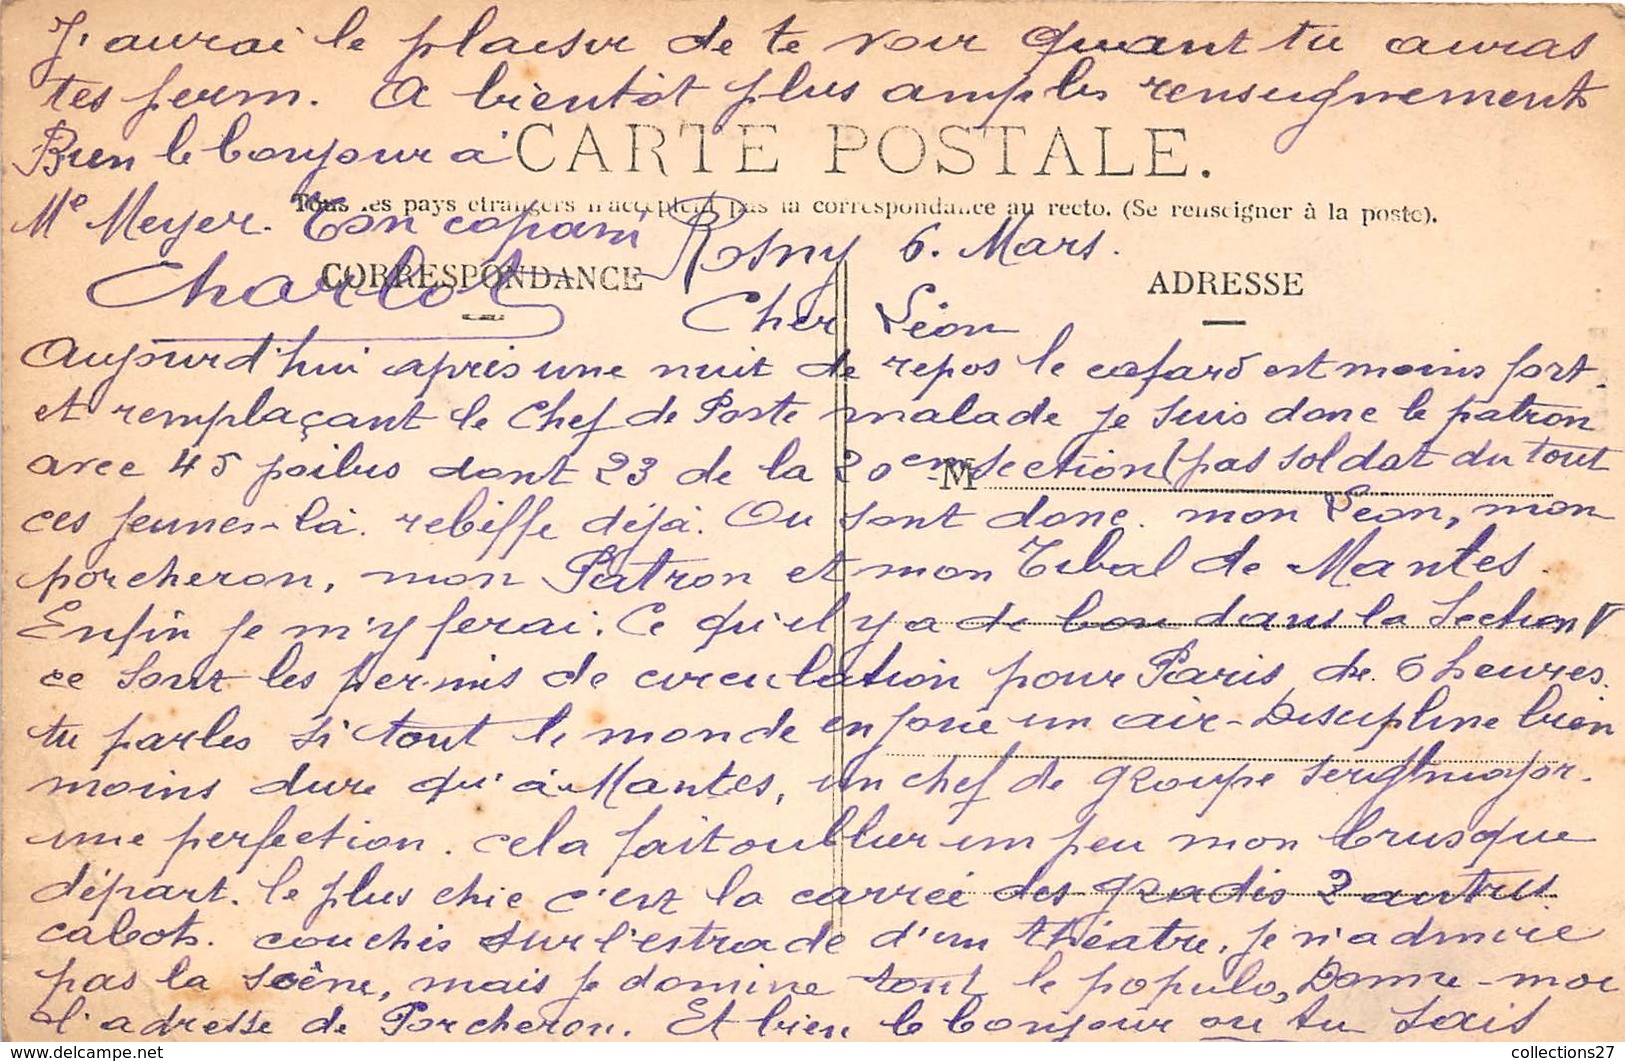 J'aurai le plaisir de te voir quant tu auras
tes perm. A bientôt plus amples renseignements
Bien le bonjour à
CARTE POSTALE.
Tous les pays étrangers n'acceptent pas la correspondance au recto. (Se renseigner à la poste).
Me Meyer. Ton copain
Charlot
CORRESPONDANCE
ADRESSE
M
Rosny 6. Mars.
Cher Léon
Aujourd'hui après une nuit de repos le cafard est moins fort.
et remplaçant le Chef de Poste malade je suis donc le patron
avec 45 poilus dont 23 de la 20eme section (pas soldat du tout
ces jeunes-là. rebiffe déjà. Ou sont donc. mon Léon, mon
porcheron, mon Patron et mon Tribal de Mantes.
Enfin je m'y ferai. Ce qu'il y a de bon dans la Section
ce sont les permis de circulation pour Paris de 6 heures.
tu parles si tout le monde en joue un air-Discipline bien
moins dure qu'à Mantes, un chef de groupe sergt major.
une perfection. cela fait oublier un peu mon brusque
départ. le plus chic c'est la carrée des gradés 2 autres
cabots. couchés sur l'estrade d'un théatre. je n'admire
pas la scène, mais je domine tout le populo, Donne-moi
l'adresse de Porcheron. Et bien le bonjour ou tu sais
collections27